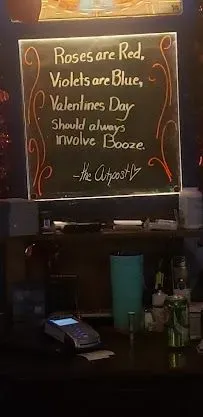 Roses are Red,
Violets are Blue,
Valentines Day
Should always
involve Booze.
-the Outpost♡